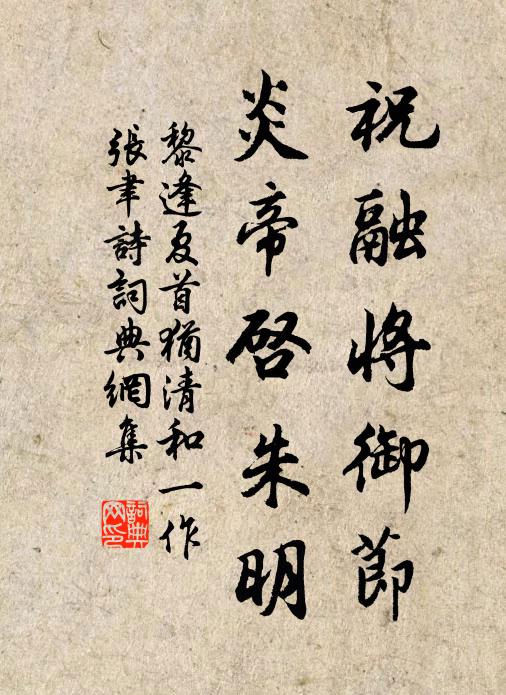 祝融将御節
炎帝啓朱明
黎逢夏首猶清和一作
張聿詩詞典網集
詞典網印